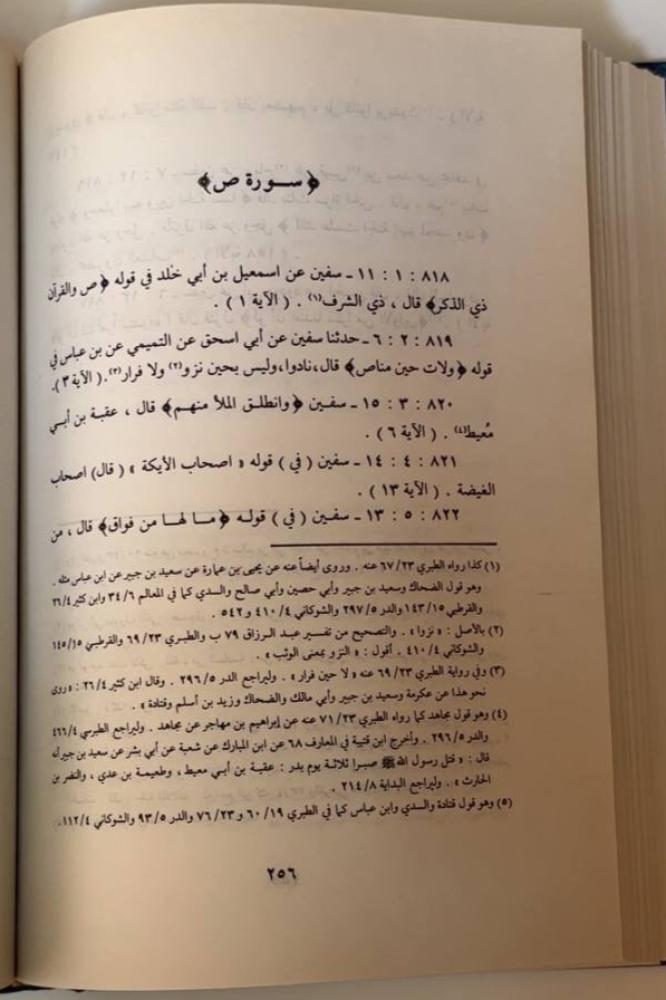 ﴿ سـورة ص ﴾
٨١٨ : ١ : ١١ ـ سفين عن اسمعيل بن أبي خلد في قوله ﴿ ص والقرآن
ذي الذكر ﴾ قال ، ذي الشرف(١) . ( الآية ١ ) .
٨١٩ : ٢ : ٦ ـ حدثنا سفين عن أبي اسحق عن التميمي عن بن عباس في
قوله ﴿ ولات حين مناص ﴾ قال ، نادوا ، وليس بحين نزو(٢) ولا فرار(٣) . ( الآية ٣ ) .
٨٢٠ : ٣ : ١٥ ـ سفين ﴿ وانطلـق الملأ منهـم ﴾ قال ، عقبـة بن أبـي
مُعيط(٤) . ( الآية ٦ ) .
٨٢١ : ٤ : ١٤ ـ سفين ( في ) قوله « اصحاب الأيكة » ( قال ) اصحاب
الغيضة . ( الآية ١٣ ) .
٨٢٢ : ٥ : ١٣ ـ سفـين ( في ) قولـه ﴿ مـا لهـا من فواق ﴾ قال ، من
(١) كذا رواه الطبري ٢٣/ ٦٧ عنه . وروى أيضاً عنه عن يحيى بن عمارة عن سعيد بن جبير عن ابن عباس مثله .
وهو قول الضحاك وسعيد بن جبير وأبي حصين وأبي صالح والسدي كما في المعالم ٦/ ٣٤ وابن كثير ٤/ ٢٦
والقرطبي ١٥/ ١٤٣ والدر ٥/ ٢٩٧ والشوكاني ٤/ ٤١٠ و ٥٤٢ .
(٢) بالأصل : « نزوا » . والتصحيح من تفسير عبـد الـرزاق ٧٩ ب والطبـري ٢٣/ ٦٩ والقرطبـي ١٥/ ١٤٥
والشوكاني ٤/ ٤١٠ . أقول : « النزو بمعنى الوثب » .
(٣) وفي رواية الطبري ٢٣/ ٦٩ عنه « لا حين فرار » . وليراجع الدر ٥/ ٢٩٦ . وقال ابن كثير ٤/ ٢٦ : « روى
نحو هذا عن عكرمة وسعيد بن جبير وأبي مالك والضحاك وزيد بن أسلم وقتادة » .
(٤) وهو قول مجاهد كما رواه الطبري ٢٣/ ٧١ عنه عن إبراهيم بن مهاجر عن مجاهد . وليراجع الطبرسي ٤/ ٤٦٦
والدر ٥/ ٢٩٦ . وأخرج ابن قتيبة في المعارف ٦٨ عن ابن المبارك عن شعبة عن أبي بشر عن سعيد بن جبير أنه
قال : « قتل رسول الله ﷺ صبرا ثلاثـة يوم بدر : عقبـة بن أبـي معيط ، وطعيمـة بن عدي ، والنضر بن
الحارث » . وليراجع البداية ٨/ ٢١٤ .
(٥) وهو قول قتادة والسدي وابن عباس كما في الطبري ١٩/ ٦٠ و ٢٣/ ٧٦ والدر ٥/ ٩٣ والشوكاني ٤/ ١١٢ .
٢٥٦